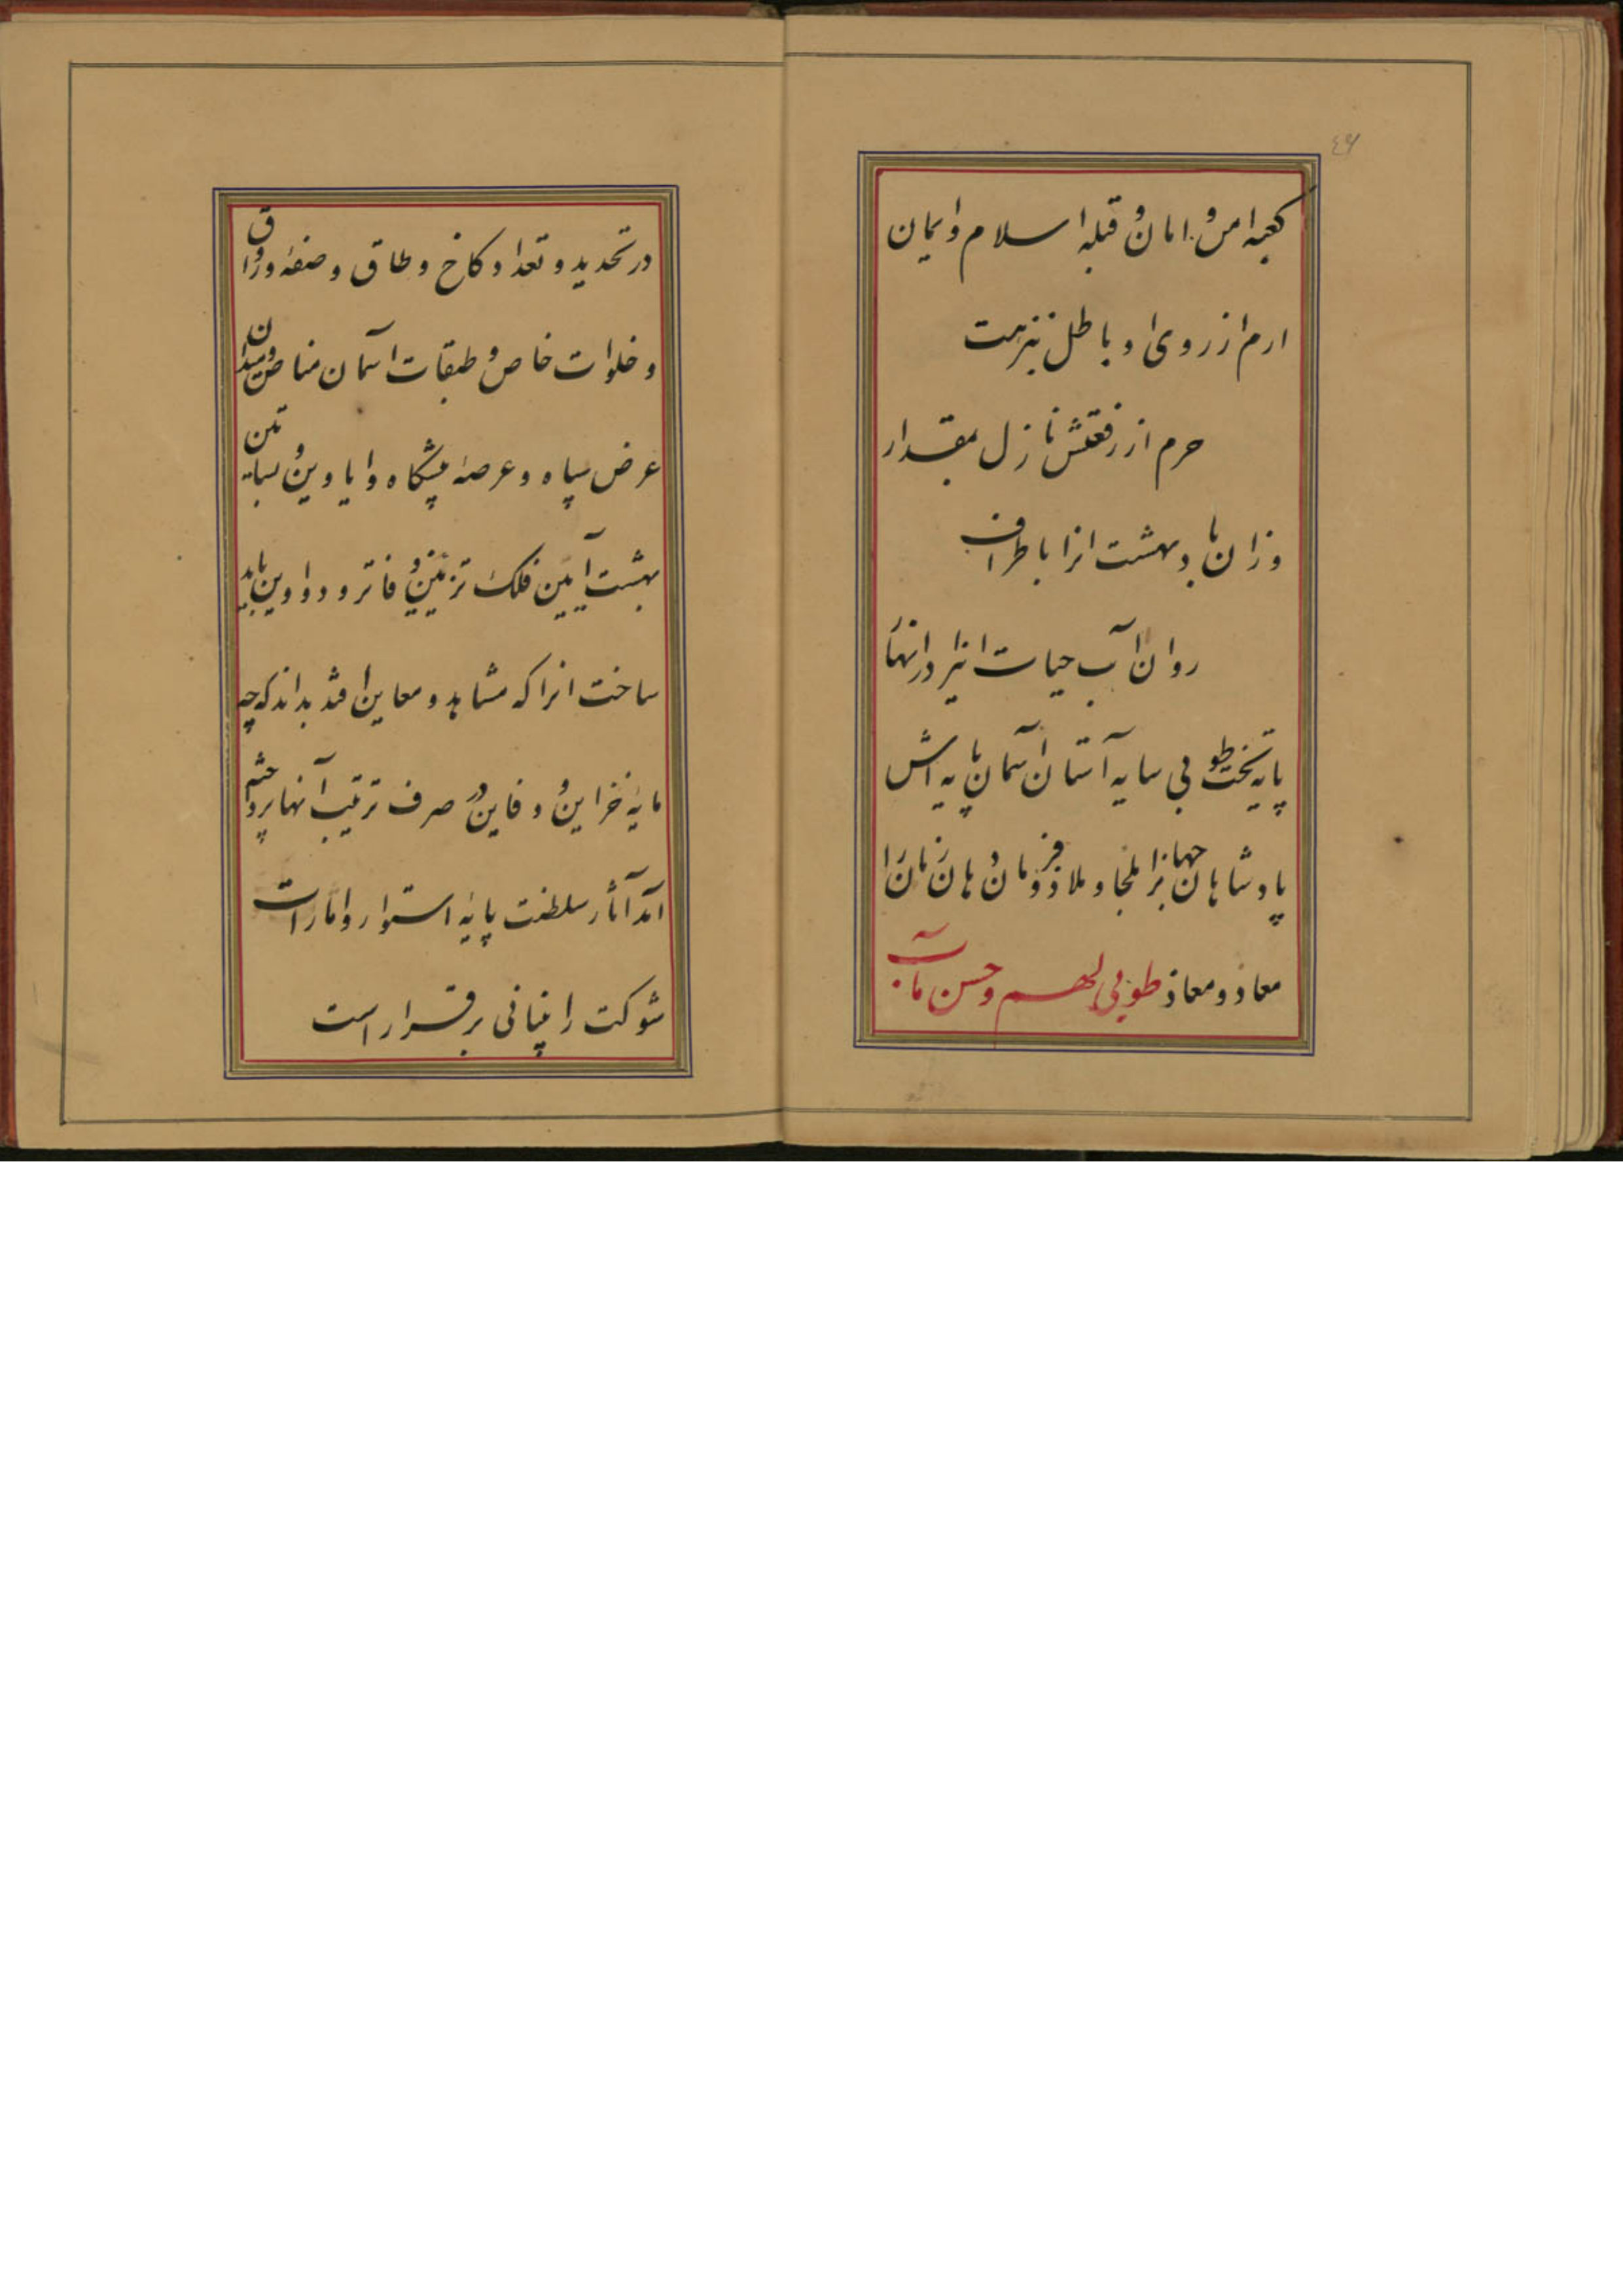 ٤٦
کعبه امن و امان و قبله اسلام و ایمان
ارم از روی او باطل بنزهت
حرم از رفعتش نازل بمقدار
وزان باد بهشت انرا باطراف
روان آب حیات انرا در انهار
پایه تخت طوبی سایه آستان آسمان پایه اش
پادشاهان جهانرا ملجا و ملاذ و فرمان دهان زمان را
معاد و معاذ طوبی لهم و حسن مآب
در تحدید و تعداد کاخ و طاق و صفه و رواق
و خلوات خاص و طبقات آسمان مناص و میدان
عرض سپاه و عرصه پیشگاه و ایاوین و بساتین
بهشت آیین فلک تزیین دفاتر و دواوین باید
ساخت انرا که مشاهد و معاین افتد بداند که چه
مایهٔ خزاین و دفاین در صرف ترتیب آنها پرداخته
آمد آثار سلطنت پایهٔ استوار و امارات
شوکت را بنیانی برقرار است